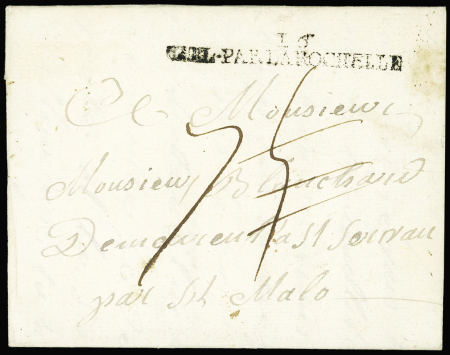 16
COL·PAR LA ROCHELLE
A Monsieur
Monsieur Blanchard
Demeurent a St Servan
par St Malo